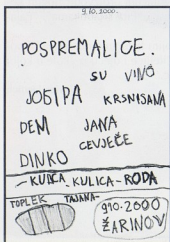 9.10.2000.
POSPREMALICE.
SU VINO
JOSIPA KRSNISANA
DEM JANA
CEVJEČE
DINKO
— KULICA - KULICA - RODA
TOPLEK TAJANA-
910.2000
ŽARINOV